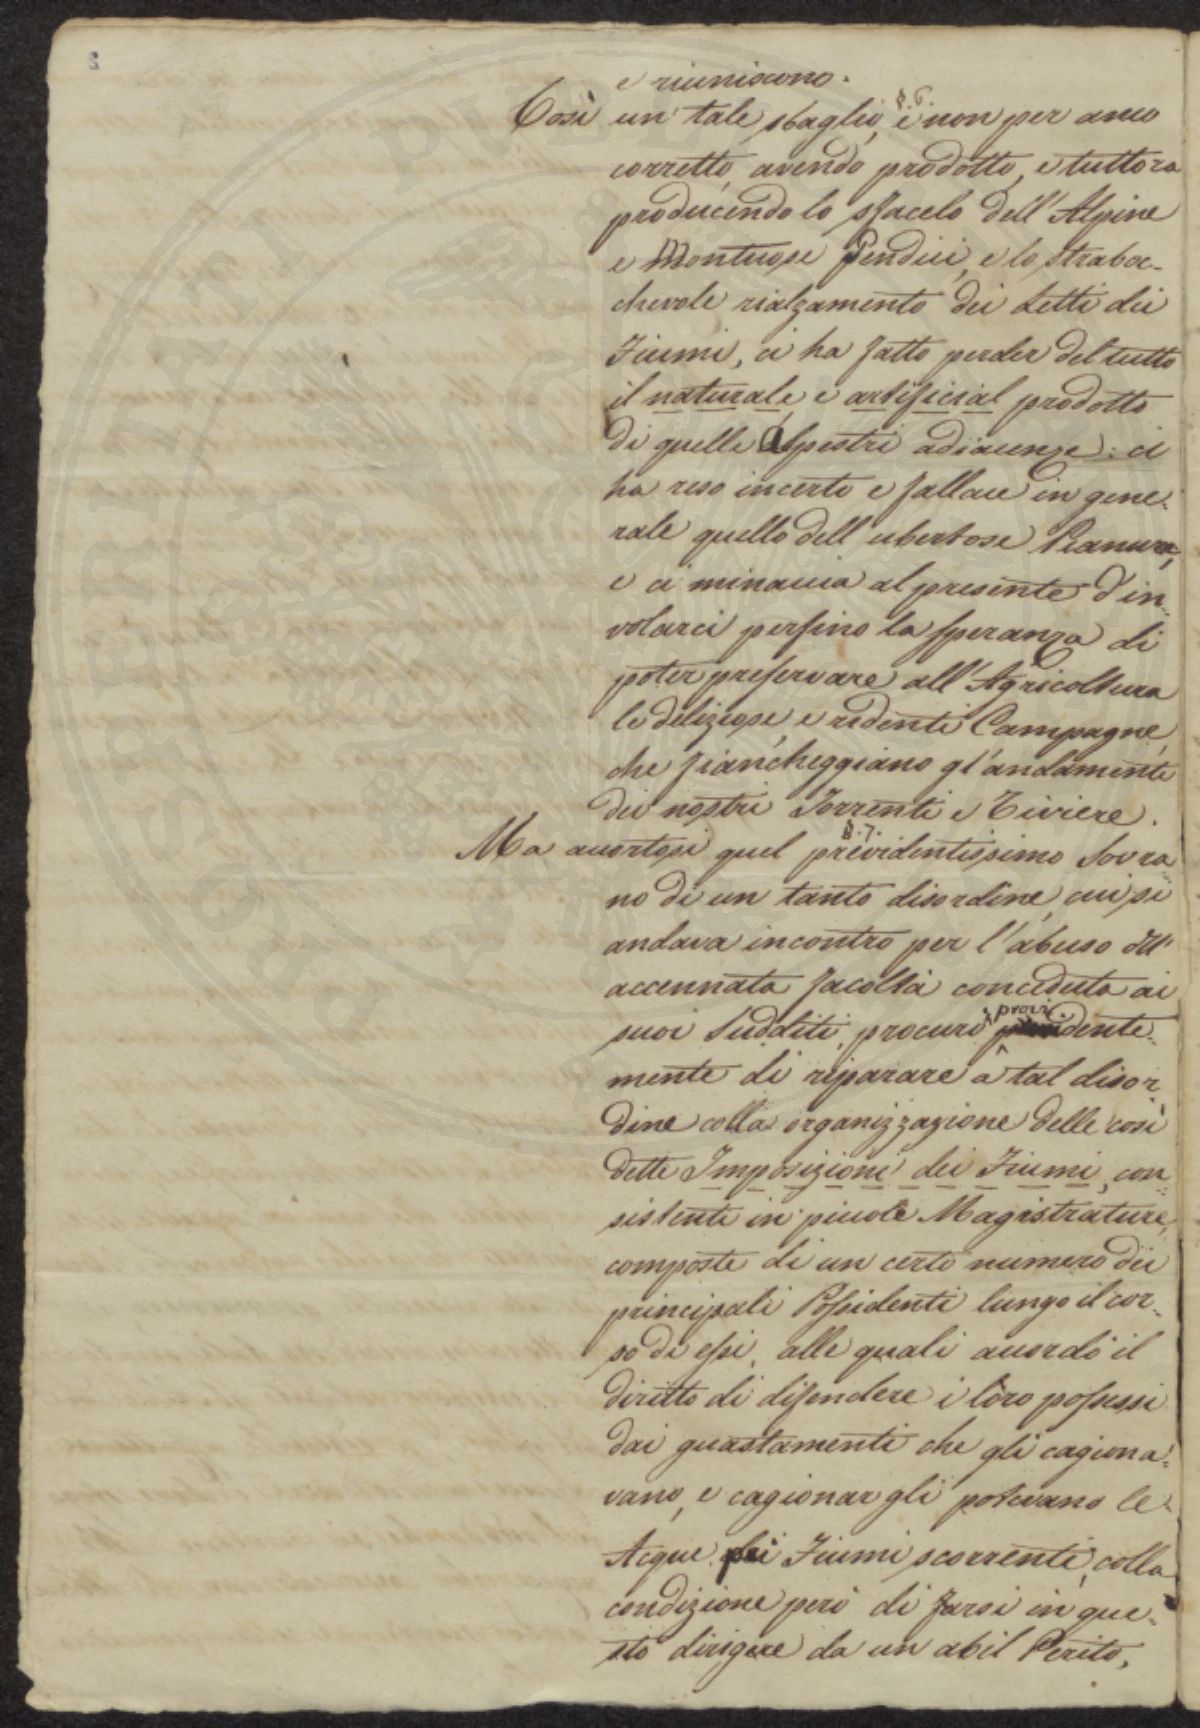 2
e riuniscono.
§. 6.
Così un tale sbaglio, e non per anco
corretto, avendo prodotto, e tuttora
producendo lo sfacelo dell'Alpine
e Montuose Pendici, e lo straboc-
chevole rialzamento dei Letti dei
Fiumi, ci ha fatto perder del tutto
il naturale, e artificial prodotto
di quelle Alpestri adiacenze: ci
ha reso incerto e fallace in gene-
rale quello dell'ubertose Pianure,
e ci minaccia al presente d'in-
volarci perfino la speranza di
poter preservare all'Agricoltura
le deliziose, e ridenti Campagne,
che fiancheggiano gl'andamenti
dei nostri Torrenti e Riviere.
§. 7.
Ma accortosi quel previdentissimo Sovra
no di un tanto disordine, cui si
andava incontro per l'abuso dell'
accennata facoltà conceduta ai
suoi Sudditi, procurò provvidente-
mente di riparare a tal disor
dine colla organizzazione delle così
dette Imposizioni dei Fiumi, con
sistenti in piccole Magistrature,
composte di un certo numero dei
principali Possidenti lungo il cor-
so di essi, alle quali accordò il
diritto di difendere i loro possessi
dai guastamenti che gli cagiona-
vano, e cagionargli potevano le
Acque dei Fiumi scorrenti, colla
condizione però di farsi in que-
sto dirigere da un abil Perito,